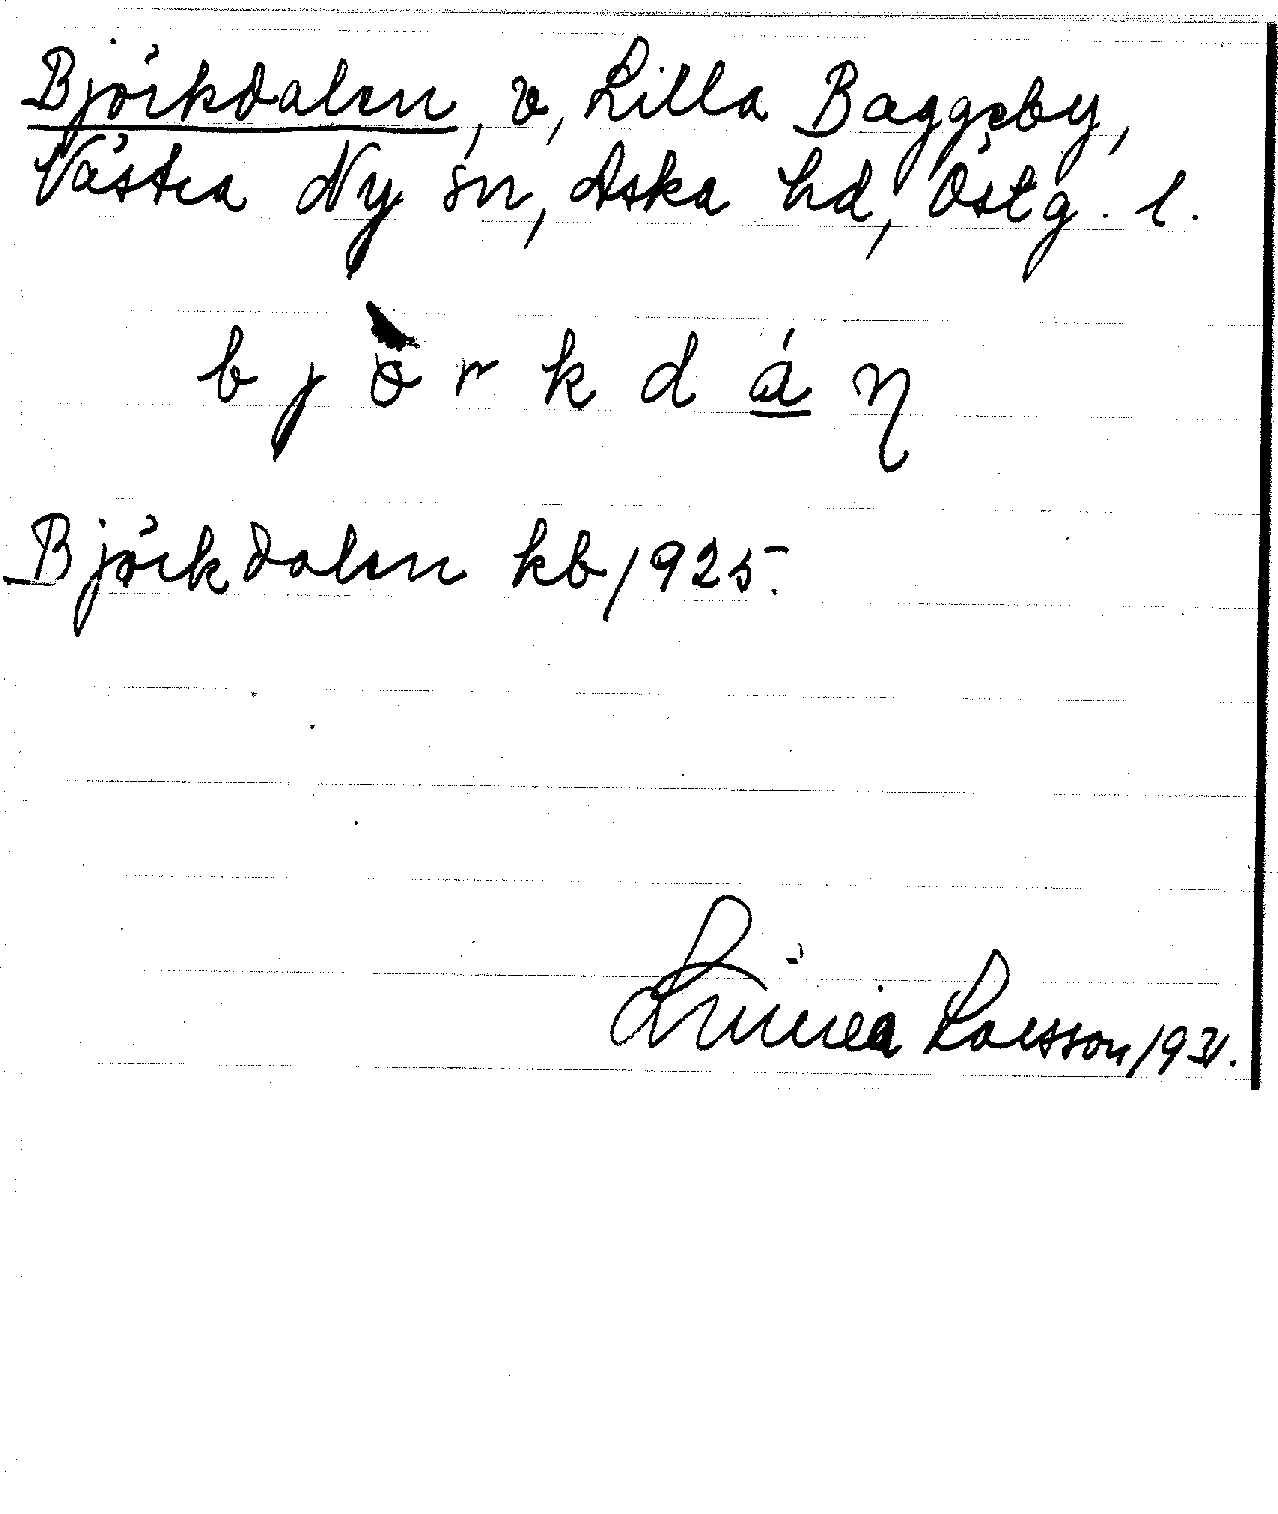 Björkdalen, v, Lilla Baggeby,
Västra Ny sn, Aska hd, Östg. l.
b j ö̀ r k d á ɳ
Björkdalen kb 1925.
Linnéa Larsson 1931.